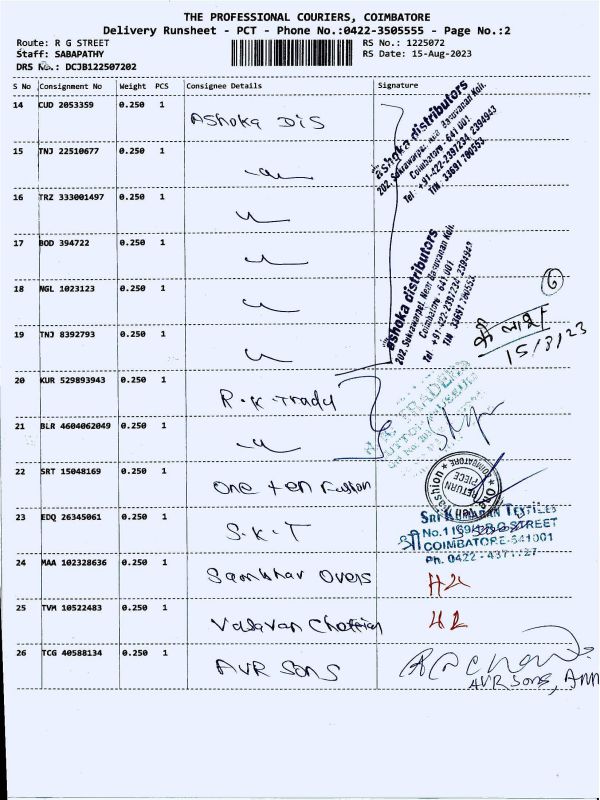 THE PROFESSIONAL COURIERS, COIMBATORE
Delivery Runsheet - PCT - Phone No.:0422-3505555 - Page No.:2
Route: R G STREET RS No.: 1225072
Staff: SABAPATHY RS Date: 15-Aug-2023
DRS No.: DCJB122507202
S No Consignment No Weight PCS Consignee Details Signature
14 CUD 2053359 0.250 1 Ashoka Dis
15 TNJ 22510677 0.250 1
16 TRZ 333001497 0.250 1
17 BOD 394722 0.250 1
18 NGL 1023123 0.250 1
19 TNJ 8392793 0.250 1
20 KUR 529893943 0.250 1 R.K. Tradu
21 BLR 4604062049 0.250 1
22 SRT 15048169 0.250 1 One ten Fashion
23 EDQ 26345061 0.250 1 S.K.T
24 MAA 102328636 0.250 1 Overs
25 TVM 10522483 0.250 1
26 TCG 40588134 0.250 1 AVR Sons
ashoka distributors
Coimbatore - 641 001
Tel : +91-422-2397234, 2394943
ashoka distributors
Coimbatore - 641 001
Tel : +91-422-2397234, 2394943
6
15/8/23
RETURN
PIECE
COIMBATORE
SRI KUMARAN TEXTILES
श्री
R.G STREET
COIMBATORE-641001
Ph. 0422 -
AVR Sons,